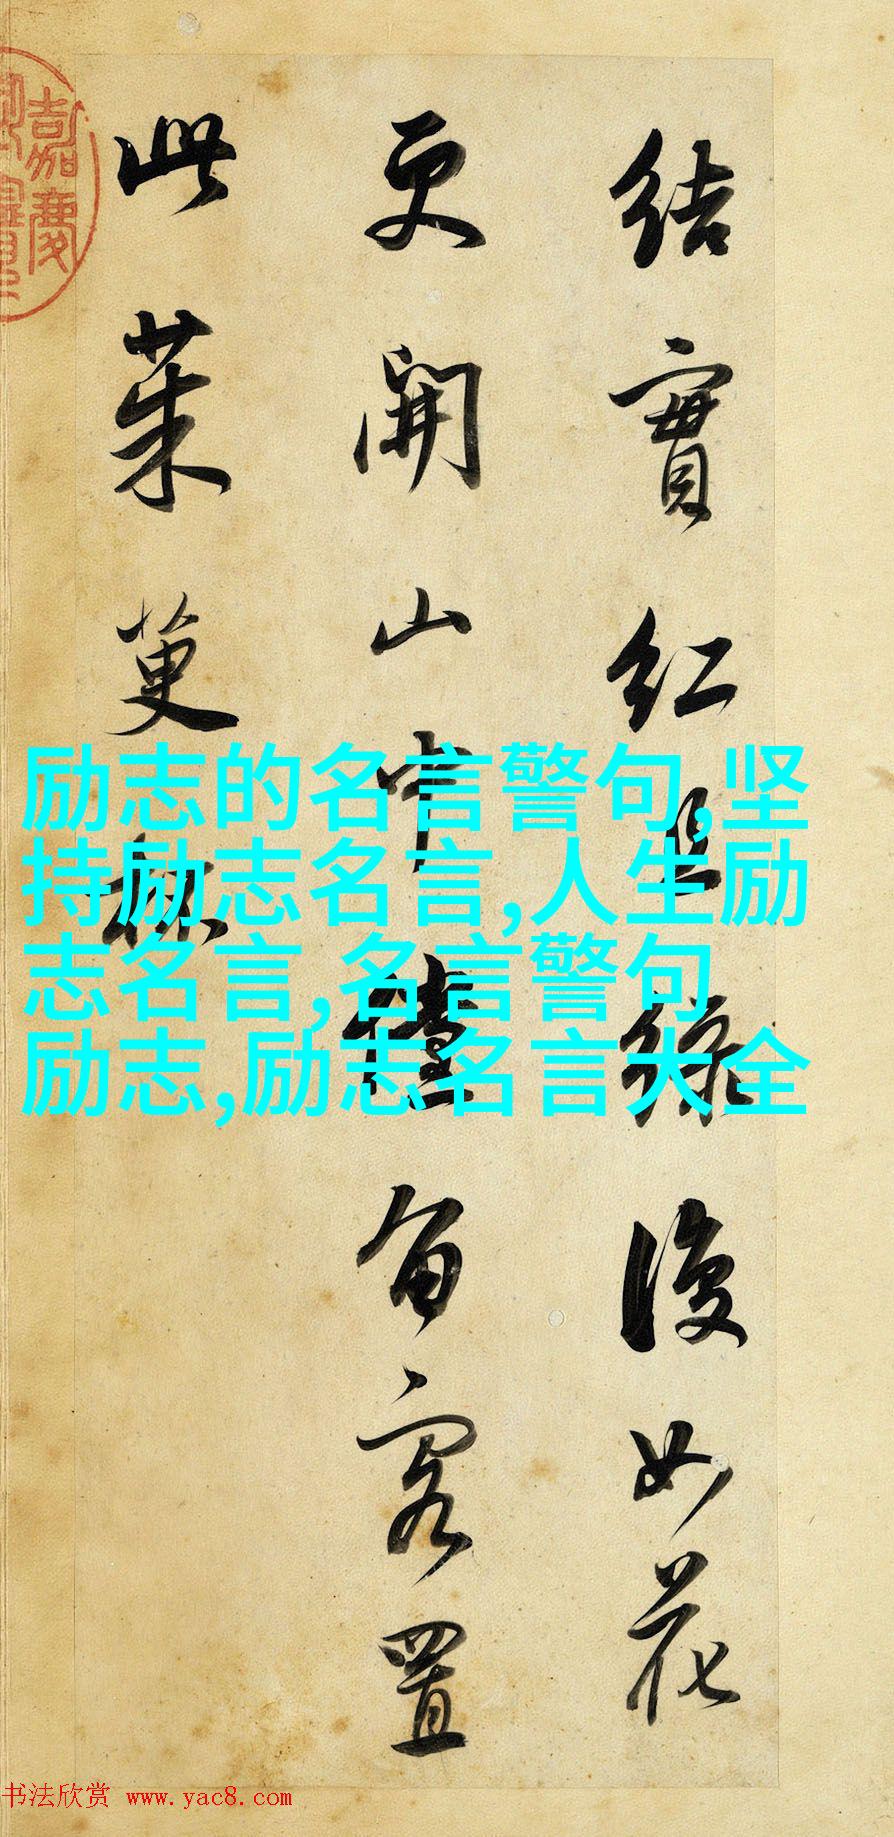 結實紅且綠復如花
更開山中儻留客置
此茱萸杯
嘉慶
励志的名言警句,坚
持励志名言,人生励
志名言,名言警句
励志,励志名言大全
书法欣赏 www.yac8.com